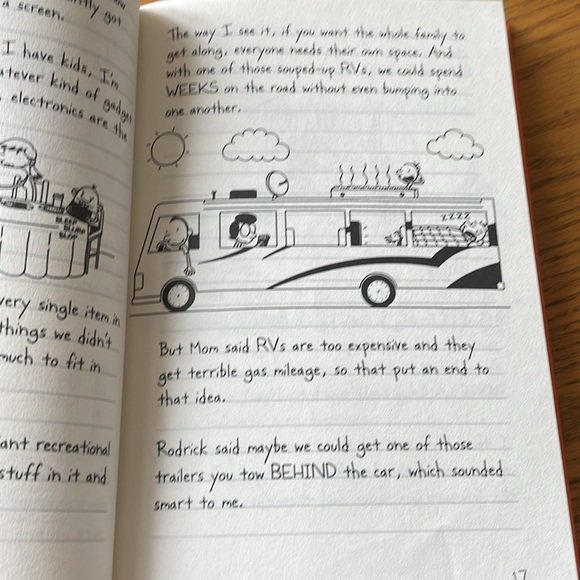 a screen.
I have kids, I'm
kind of gadget
electronics are the
BLEEP
BLOOP
every single item in
things we didn't
much to fit in
recreational
stuff in it and
The way I see it, if you want the whole family to
get along, everyone needs their own space. And
with one of those souped-up RVs, we could spend
WEEKS on the road without even bumping into
one another.
ZZZZ
But Mom said RVs are too expensive and they
get terrible gas mileage, so that put an end to
that idea.
Rodrick said maybe we could get one of those
trailers you tow BEHIND the car, which sounded
smart to me.
17